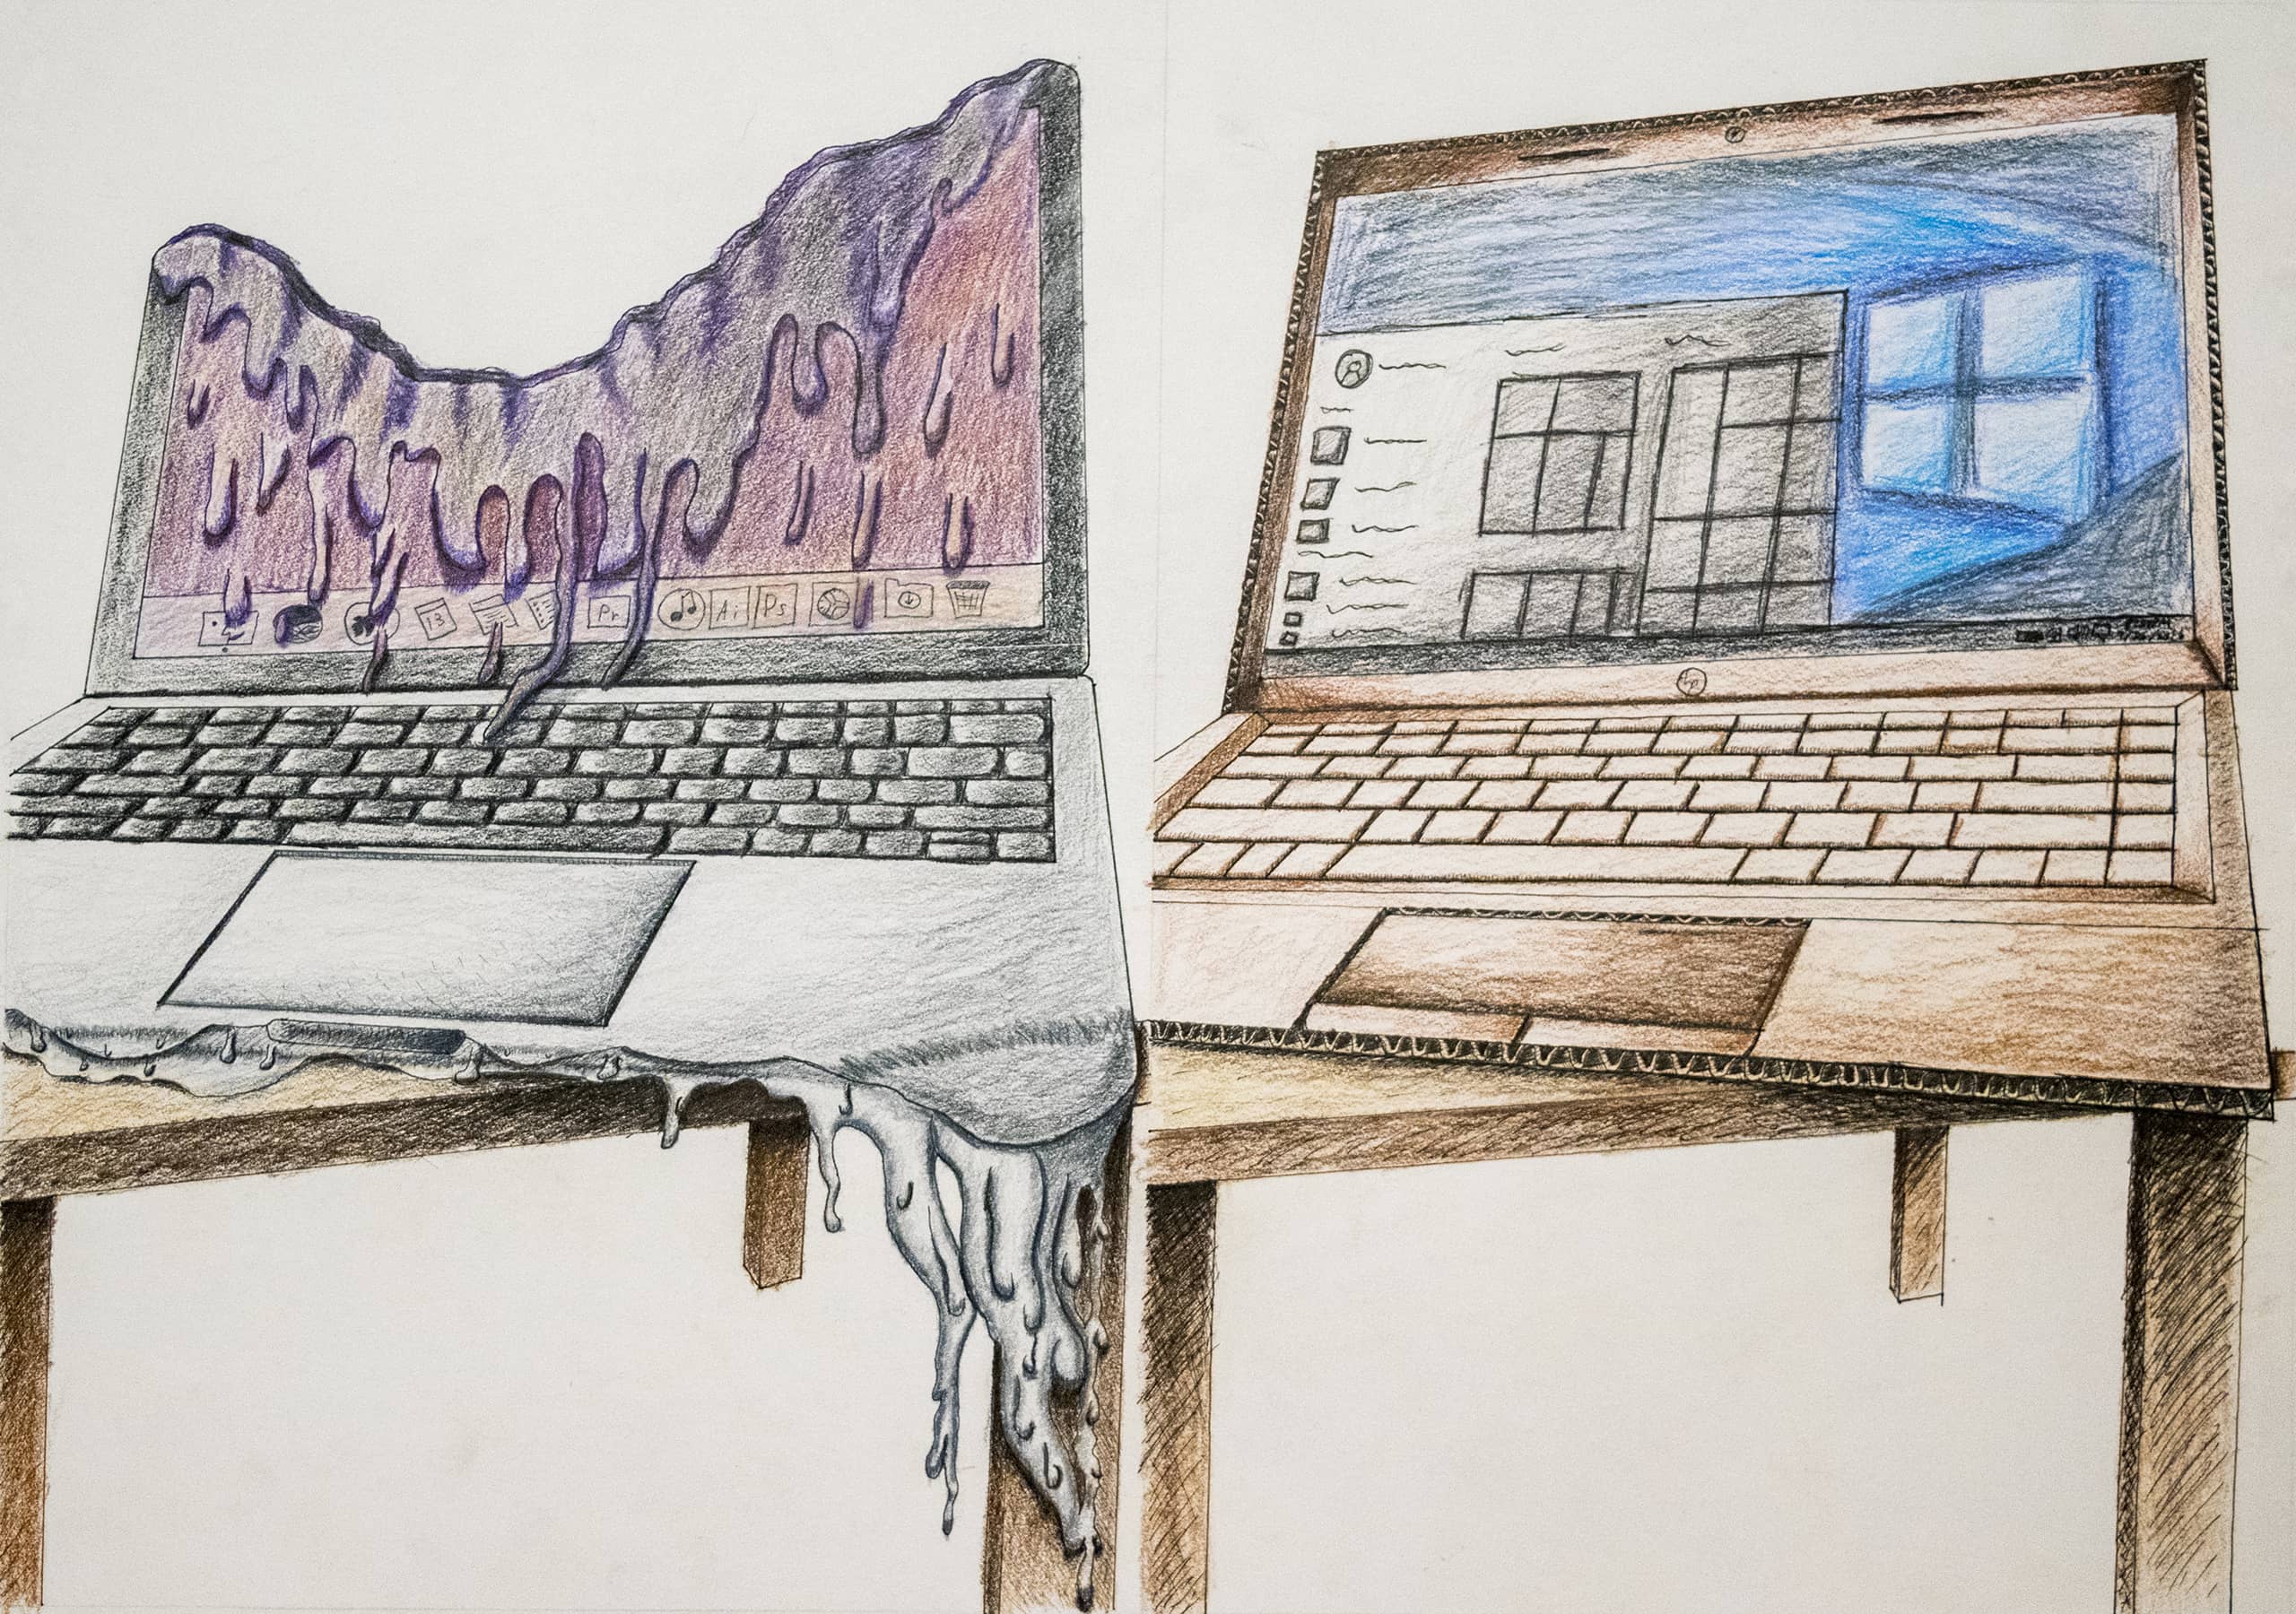 13
Pr
Ai
Ps
hp